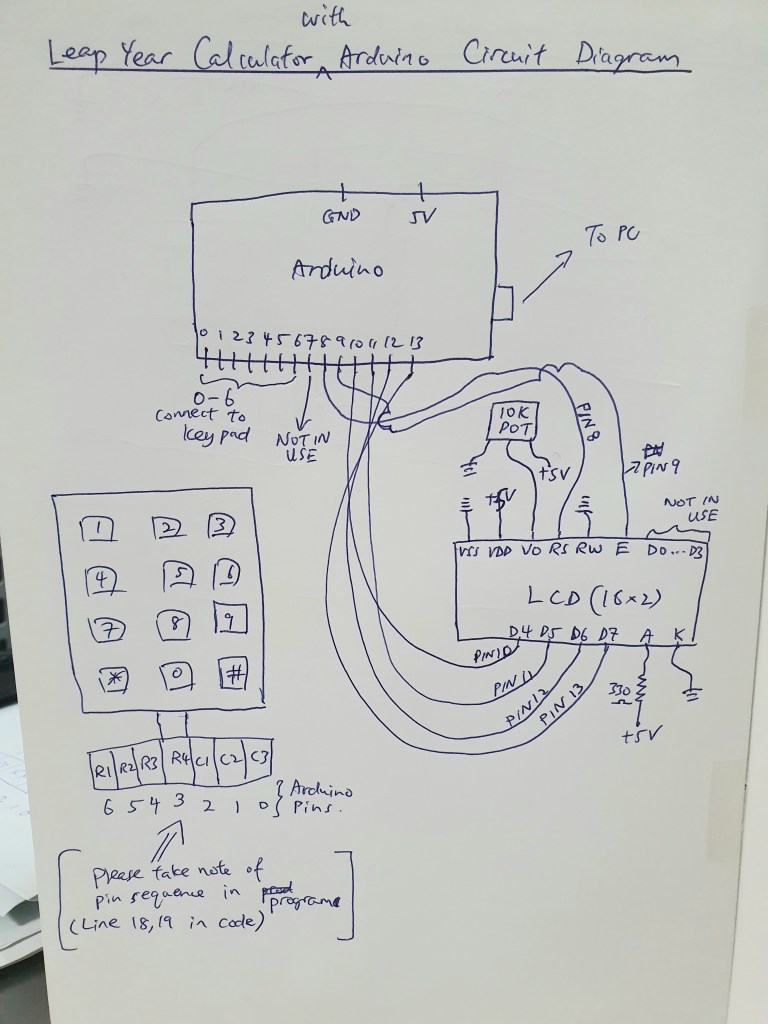 with
Leap Year Calculator ^ Arduino Circuit Diagram
GND 5V
Arduino
To PC
0 1 2 3 4 5 6 7 8 9 10 11 12 13
0-6
connect to
keypad
NOT IN
USE
10K
POT
+5V
+5V
PIN 8
PIN 9
NOT IN
USE
VSS VDD VO RS RW E D0...D3
LCD (16×2)
D4 D5 D6 D7 A K
PIN 10
PIN 11
PIN 12
PIN 13
330
Ω
+5V
1 2 3
4 5 6
7 8 9
* 0 #
R1 R2 R3 R4 C1 C2 C3
6 5 4 3 2 1 0 } Arduino
Pins.
[Please take note of
pin sequence in program
(Line 18,19 in code)]